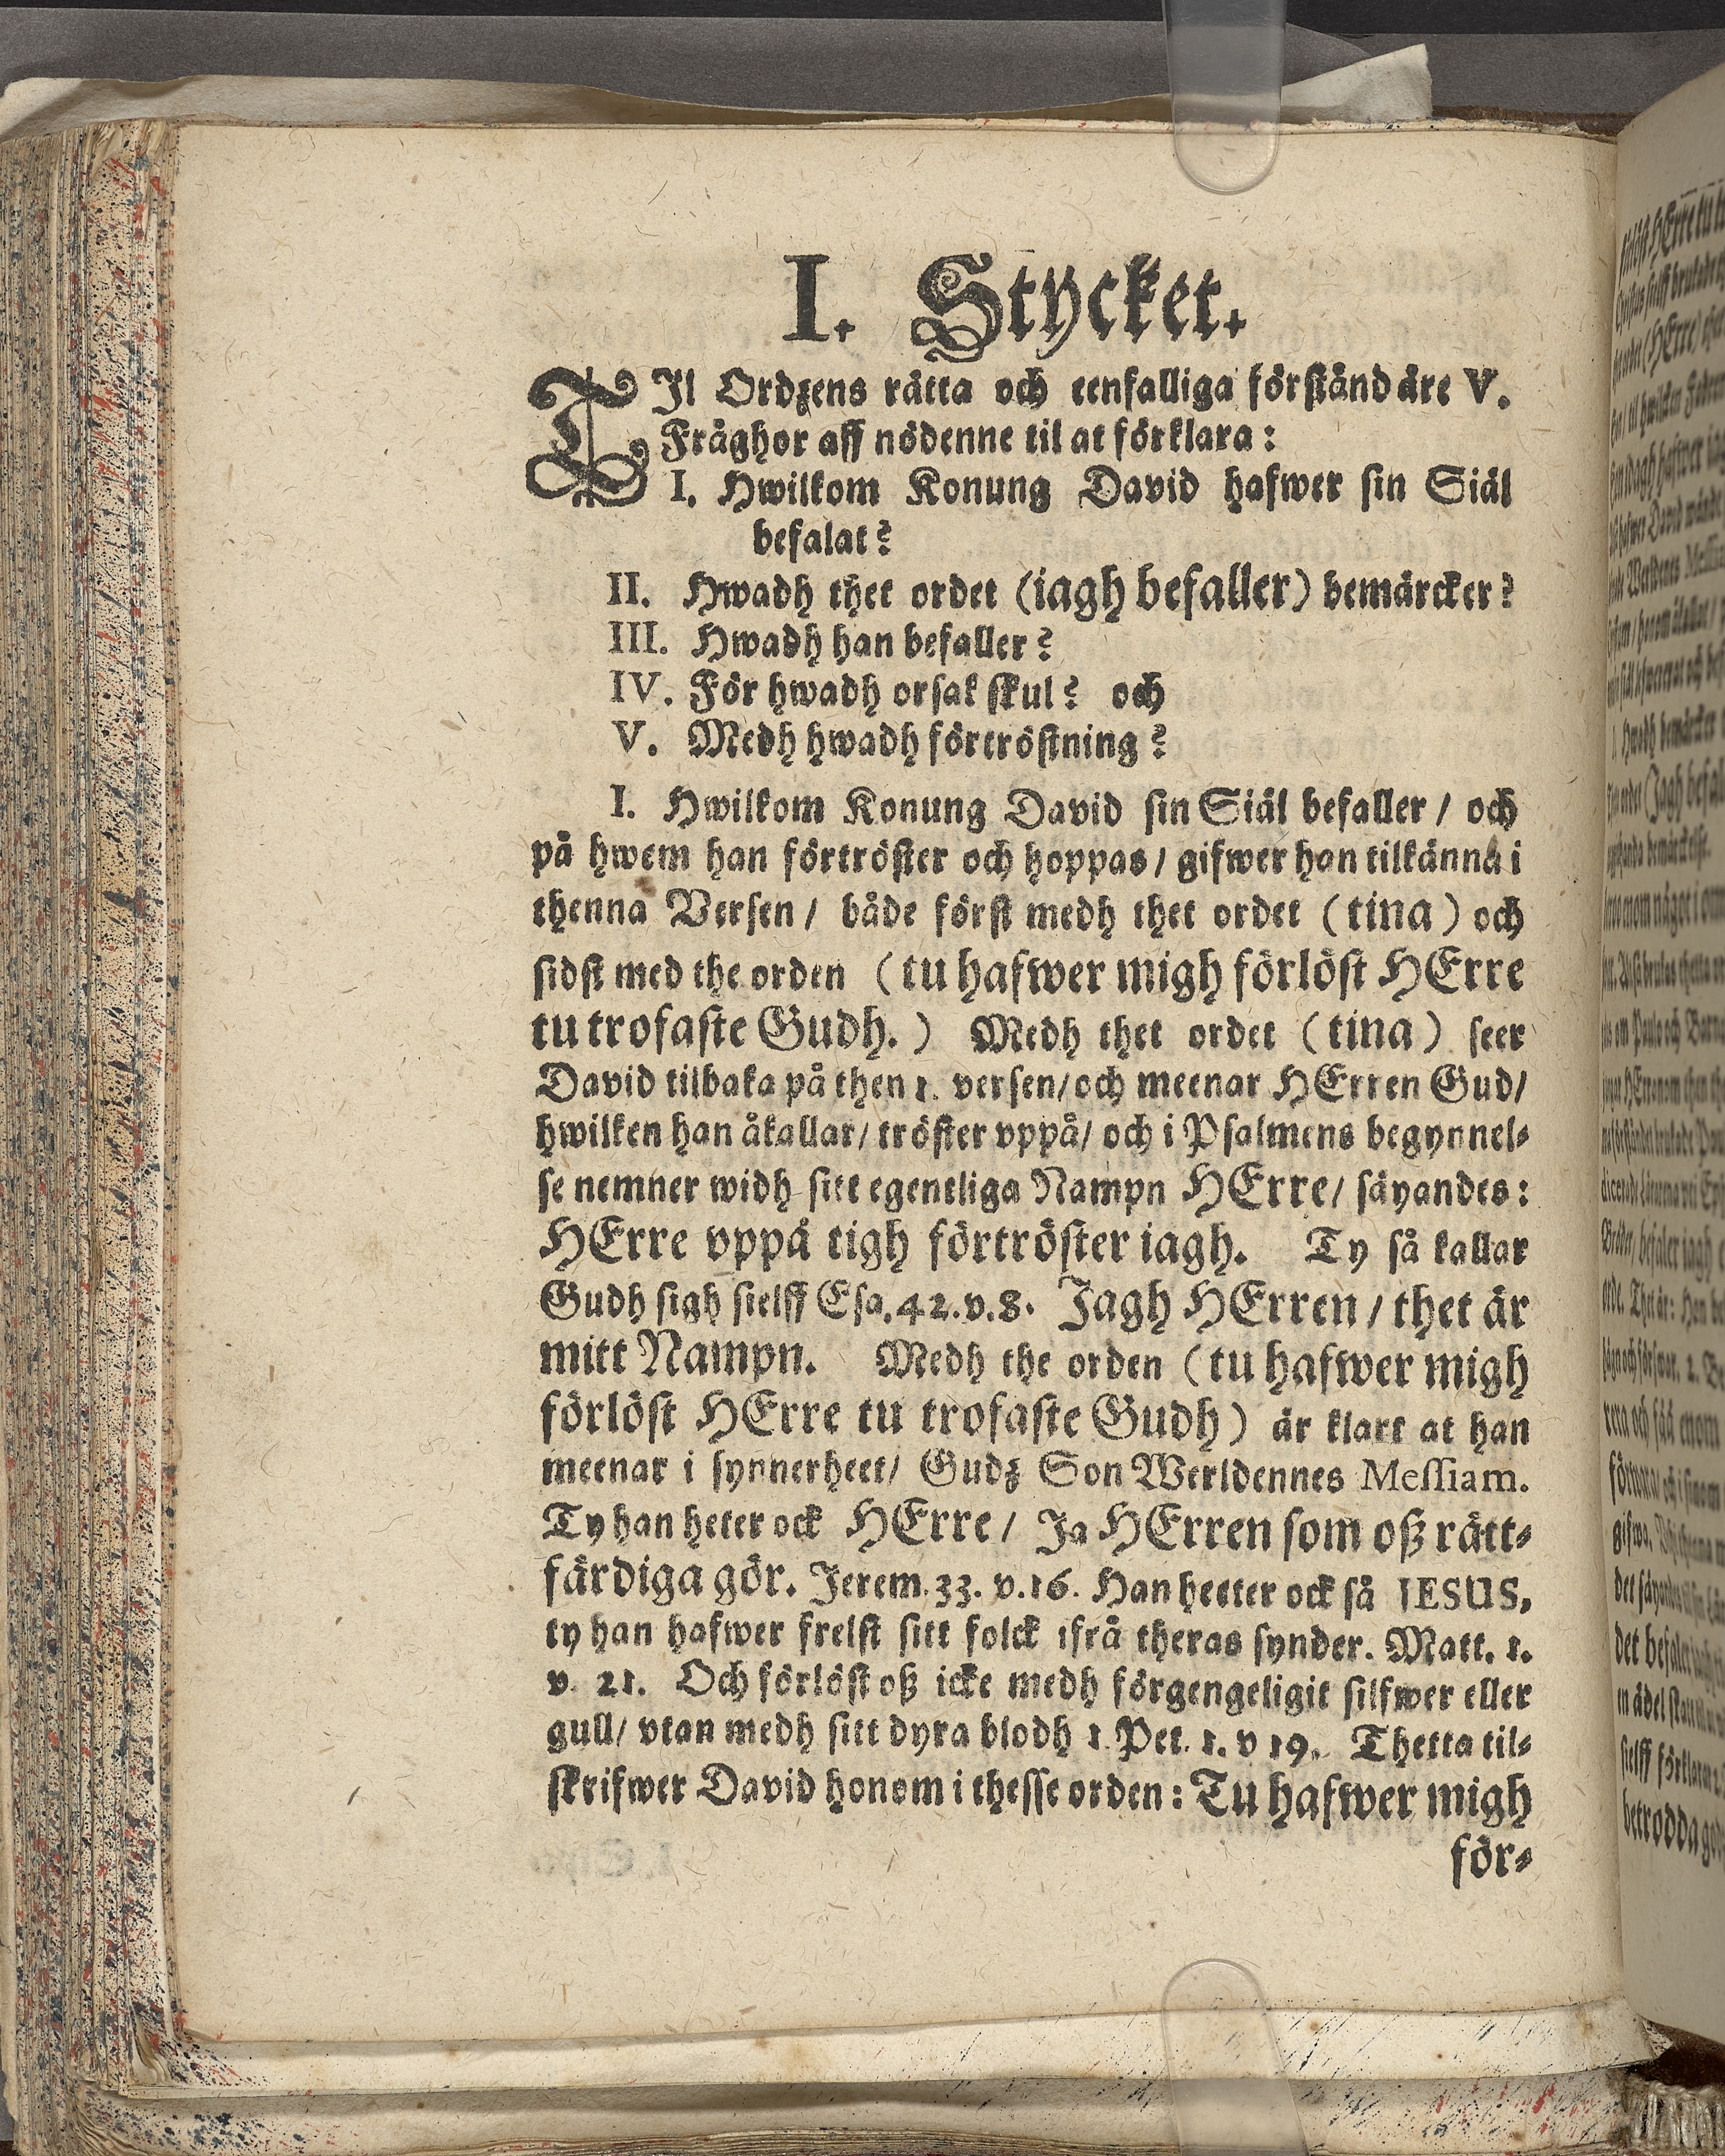 I. Stycket.
TIl Ordzens rätta och eenfalliga förständ äre V.
Fråghor aff nödenne til at förklara:
I. Hwilkom Konung David hafwer sin Siäl
befalat?
II. Hwadh thet ordet (iagh befaller) bemärcker?
III. Hwadh han befaller?
IV. För hwadh orsak skul? och
V. Medh hwadh förtröstning?
I. Hwilkom Konung David sin Siäl befaller / och
på hwem han förtröster och hoppas / gifwer han tilkänna i
thenna Versen / både först medh thet ordet (tina) och
sidst med the orden (tu hafwer migh förlöst HErre
tu trofaste Gudh.) Medh thet ordet (tina) seer
David tilbaka på then 1. versen / och meenar HErren Gud /
hwilken han åkallar / tröster vppå / och i Psalmens begynnel-
se nemner widh sitt egentliga Nampn HErre / säyandes:
HErre vppå tigh förtröster iagh. Ty så kallar
Gudh sigh sielff Esa. 42. v. 8. Jagh HErren / thet är
mitt Nampn. Medh the orden (tu hafwer migh
förlöst HErre tu trofaste Gudh) är klart at han
meenar i synnerheet / Gudz Son Werldennes Messiam.
Ty han heter ock HErre / Ja HErren som oß rätt-
färdiga gör. Jerem. 33. v. 16. Han heeter ock så JESUS,
ty han hafwer frelst sitt folck ifrå theras synder. Matt. 1.
v. 21. Och förlöst oß icke medh förgengeligit silfwer eller
gull / vtan medh sitt dyra blodh 1. Pet. 1. v 19. Thetta til-
skrifwer David honom i thesse orden: Tu hafwer migh
för-